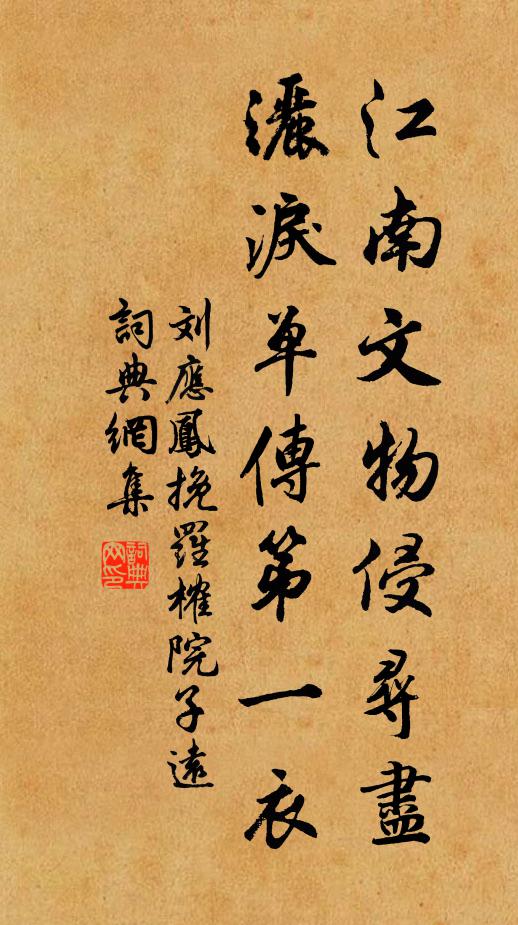 江南文物侵尋盡
灑淚单傳第一衣
刘應鳳挽羅榷院子遠
詞典網集
詞典网印